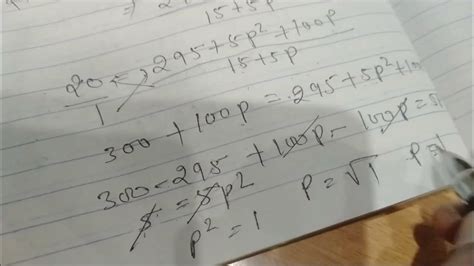 15+5p
20 = 295+5p²+100p
1 15+5p
300 + 100p = 295+5p²+100
300 - 295 + 100p - 100p = 5
5 = 5p²
p² = 1 p = √1 p =